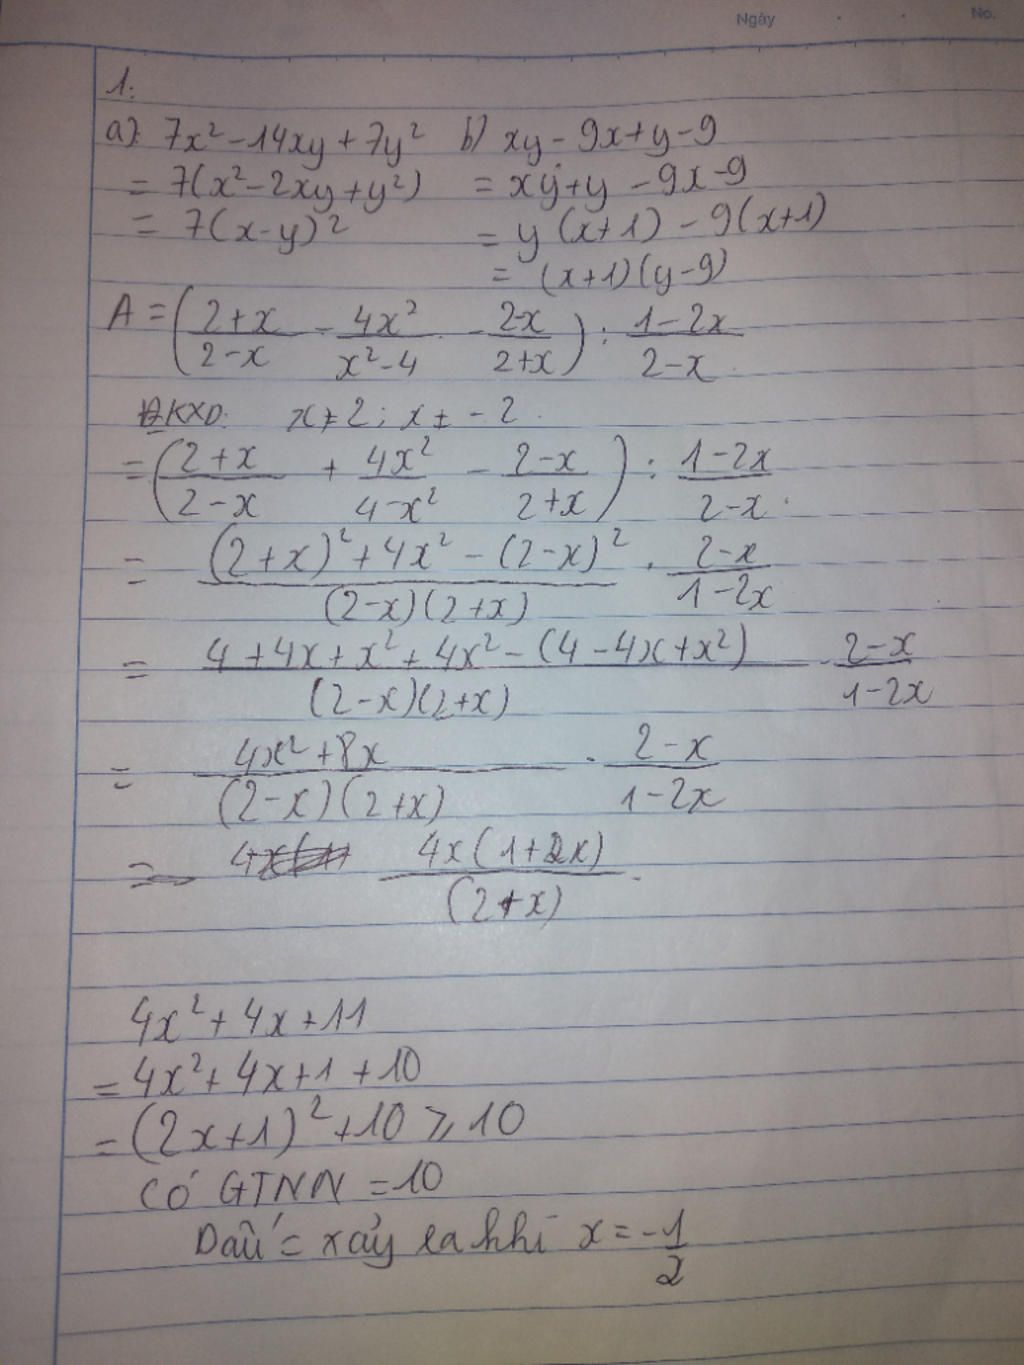 Ngày . . No.
1.
a) 7x² - 14xy + 7y² b) xy - 9x + y - 9
= 7(x² - 2xy + y²) = xy + y - 9x - 9
= 7(x - y)² = y(x+1) - 9(x+1)
= (x+1)(y-9)
A = ((2+x)/(2-x) - 4x²/(x²-4) - (2-x)/(2+x)) : (1-2x)/(2-x)
ĐKXD: x ≠ 2; x ± -2.
= ((2+x)/(2-x) + 4x²/(4-x²) - (2-x)/(2+x)) : (1-2x)/(2-x).
= ((2+x)² + 4x² - (2-x)²)/((2-x)(2+x)) . (2-x)/(1-2x)
= (4 + 4x + x² + 4x² - (4 - 4x + x²))/((2-x)(2+x)) . (2-x)/(1-2x)
= (4x² + 8x)/((2-x)(2+x)) . (2-x)/(1-2x)
= 4x(1+2x)/(2+x).
4x² + 4x + 11
= 4x² + 4x + 1 + 10
= (2x+1)² + 10 ⩾ 10
Có GTNN = 10
Dấu = xảy ra khi x = -1/2